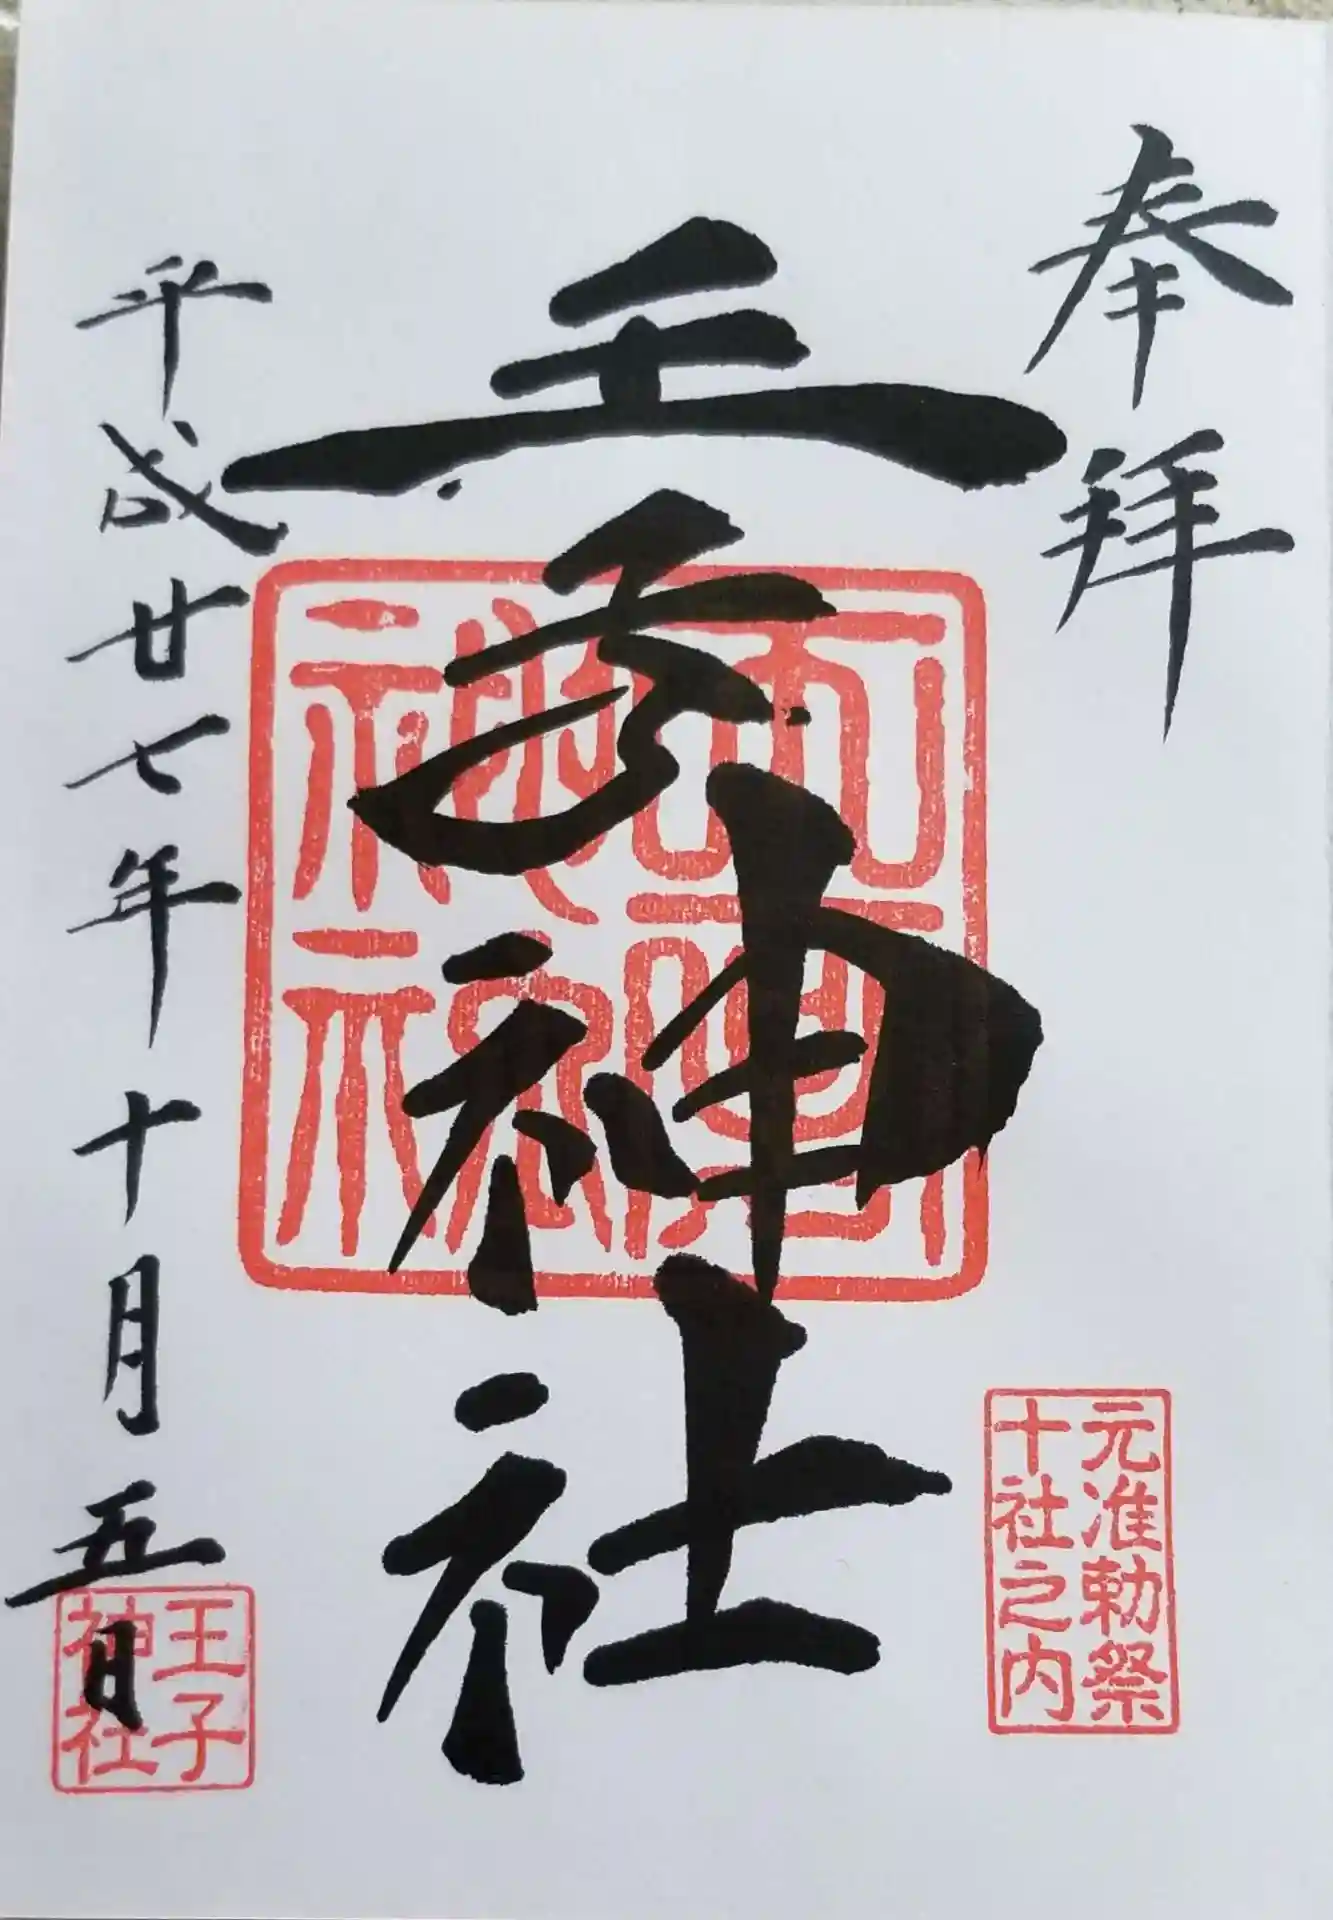 奉拝
元准勅祭
十社之内
王子神社
平成廿七年十月五日
王子
神社